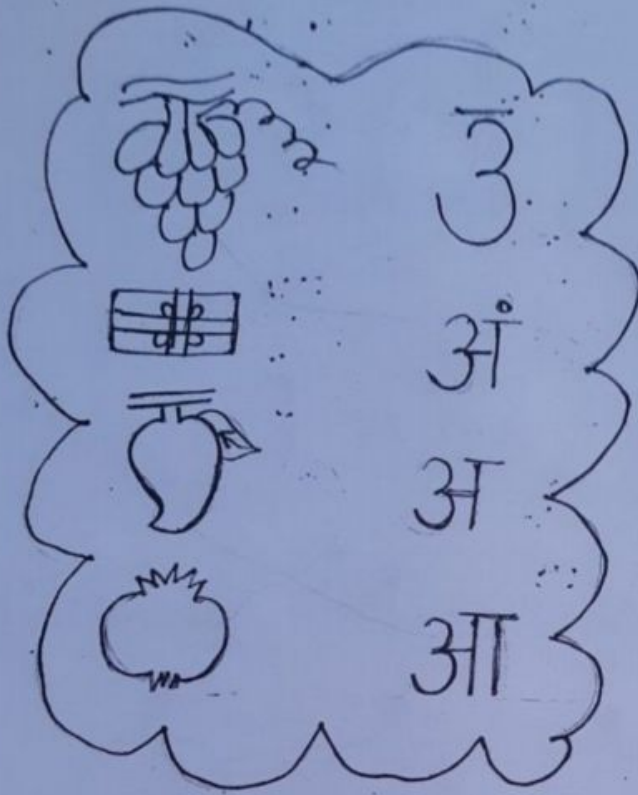 उ
अं
अ
आ